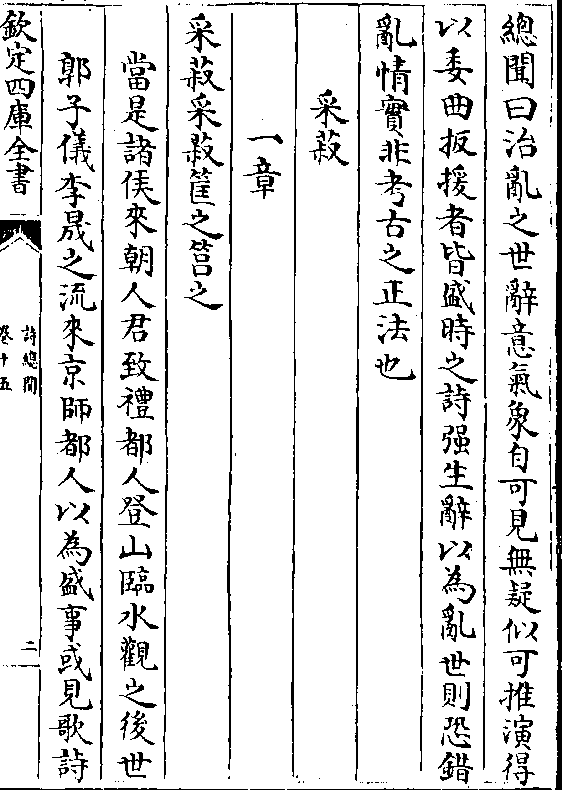 總聞曰治亂之世辭意氣象自可見無疑似可推演得
以委曲扳援者皆盛時之詩强生辭以為亂世則恐錯
亂情實非考古之正法也
采菽
一章
采菽采菽筐之筥之
當是諸侯來朝人君致禮都人登山臨水觀之後世
郭子儀李晟之流來京師都人以為盛事或見歌詩
欽定四庫全書
詩總聞
卷十五
二